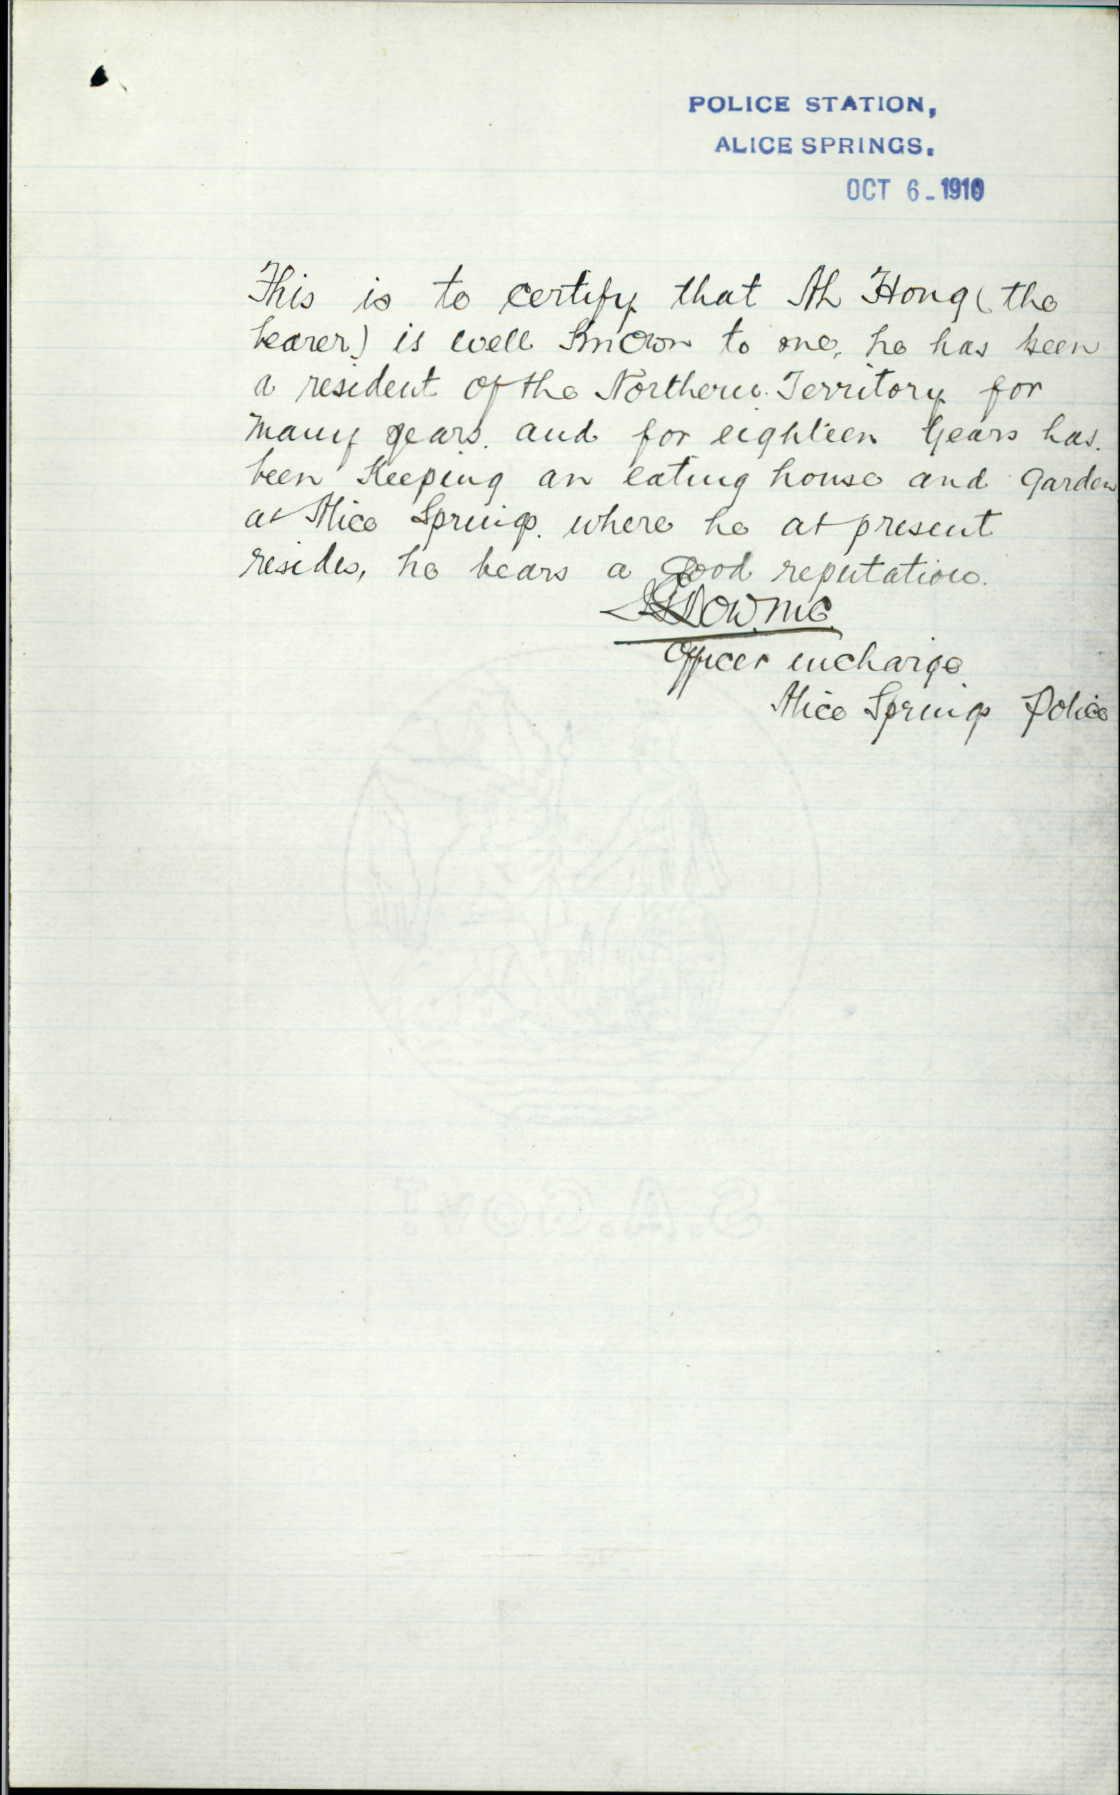 POLICE STATION,
ALICE SPRINGS.
OCT 6-1910
This is to certify that Ah Hong (the
bearer) is well Known to me, he has been
a resident of the Northern Territory for
many years. and for eighteen years has.
been Keeping an eating house and garden
at Alice Springs. where he at present
resides, he bears a good reputation.
Downe
Officer incharge
Alice Springs Police
S.A.GOVT